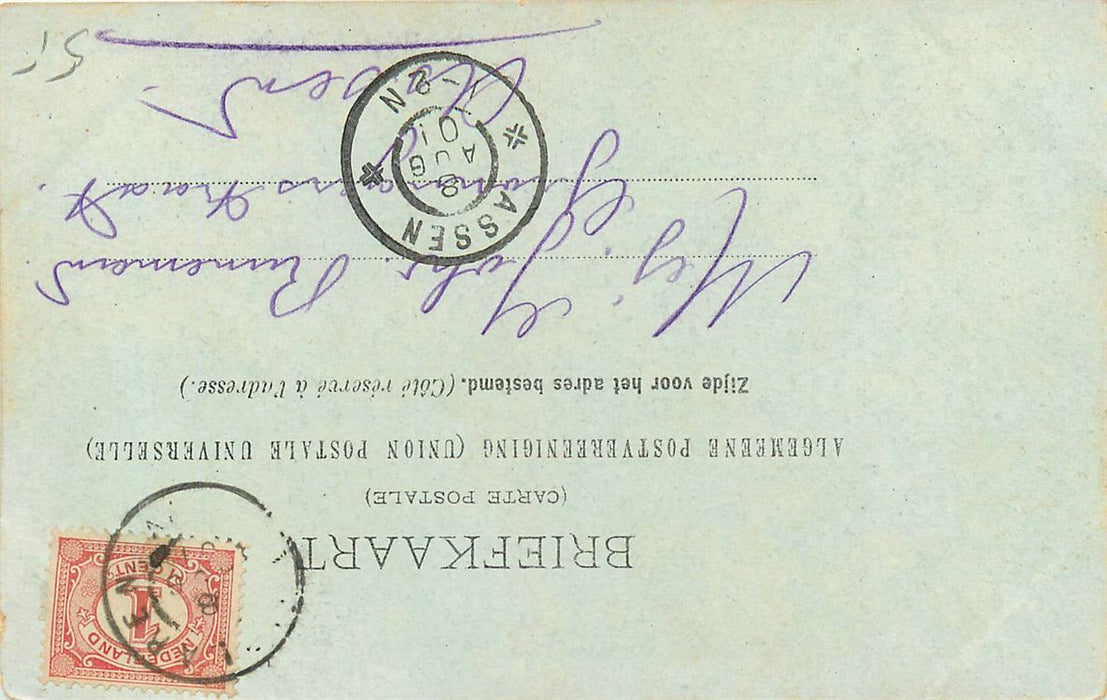 BRIEFKAART
(CARTE POSTALE)
ALGEMEENE POSTVEREENIGING (UNION POSTALE UNIVERSELLE)
Zijde voor het adres bestemd. (Côté réservé à l'adresse.)
Mej. Joh.
straat.
Assen
ASSEN
8
AUG
01
1-2N
NEDERLAND
1
CENT